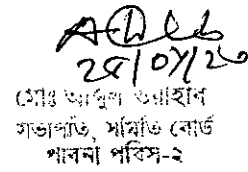 28/07/20
মোঃ আব্দুল ওয়াহাব
সভাপতি, সমিতি বোর্ড
পাবনা পবিস-২